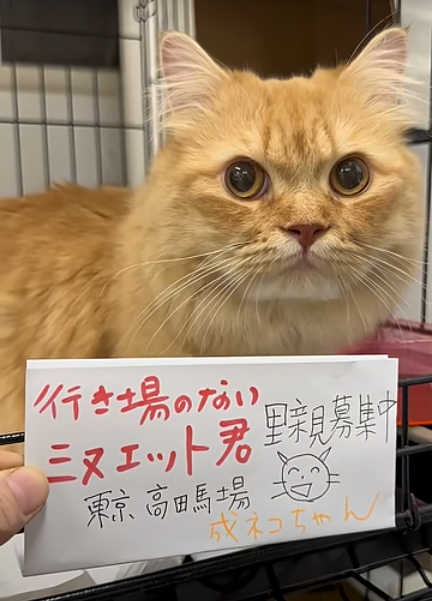 行き場のない
ミヌエット君
里親募集中
東京 高田馬場
成ネコちゃん